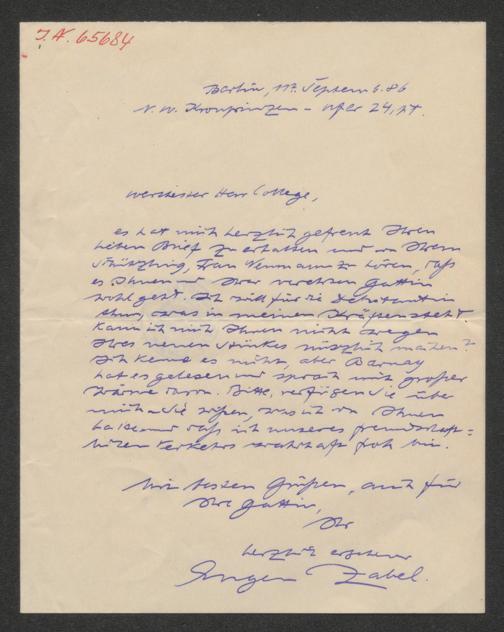 J.N. 65684
Berlin, 17. Septem b. 86
N. W. Kronprinzen-Ufer 24, pt.
Werthester Herr College,
es hat mich herzlich gefreut Ihren
lieben Brief zu erhalten und von Ihrem
Schützling, Frau Neumann zu hören, daß
es Ihnen und Ihrer verehrten Gattin
wohl geht. Ich will für die Debutantin
thun, was in meinen Kräften steht.
Kann ich mich Ihnen nicht wegen
Ihres neuen Stückes nützlich machen?
Ich kenne es nicht, aber Barnay
hat es gelesen und sprach mit großer
Wärme davon. Bitte, verfügen Sie über
mich. Sie wissen, was ich von Ihnen
halte und daß ich unseres freundschaft-
lichen Verkehrs wahrhaft froh bin.
Mit besten Grüßen, auch für
Ihre Gattin,
Ihr
herzlich ergebener
Eugen Zabel.